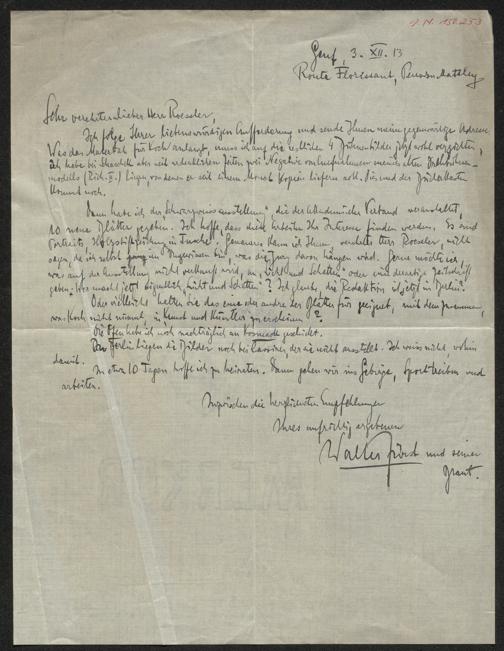 J. N. 150.253
Genf, 3. XII. 13
Route Florissant, Pension
Sehr verehrter lieber Herr Roessler,
Ich folge Ihrer liebenswürdigen Aufforderung und sende Ihnen meine gegenwärtige Adresse
Was das Material für Koch anlangt, muss ich die restlichen 4 jetzt wohl verzichten,
ich habe bei aber seit Zeiten zwei Negative von Aufnahmen meines alten
modells liegen, von denen er seit einem Monat Kopien liefern soll. Dies und der
kommt noch.
Dann habe ich der "Schwarzweissausstellung", die der Akademische Verband veranstaltet,
10 neue Blätter gegeben. Ich hoffe, dass diese Arbeiten Ihr Interesse finden werden. Es sind
Portraits, in Tusche. Genaueres kann ich Ihnen, verehrter Herr Roessler, nicht
sagen, da ich selbst ganz im Ungewissen bin, was die Jury davon hängen wird. Gerne möchte ich
was auf der Ausstellung nicht verkauft wird, an "Licht und Schatten" oder eine derartige Zeitschrift
geben. Wer macht jetzt eigentlich "Licht und Schatten"? Ich glaube, die Redaktion ist jetzt in Berlin.
Oder vielleicht halten Sie das eine oder andere der Blätter für geeignet, mit dem zusammen,
was Koch nicht nimmt in Kunst und Künstler zu erscheinen?
Die habe ich noch nachträglich an Kosmack geschickt.
In Berlin liegen die Bilder noch bei Cassirer, der sie nicht ausstellt. Ich weiss nicht wohin
damit.
In etwa 10 Tagen hoffe ich zu heiraten. Dann gehen wir ins Gebirge, Sport treiben und
arbeiten.
Inzwischen die herzlichsten Empfehlungen
Ihres aufrichtig ergebenen
Walter und seiner
Braut.